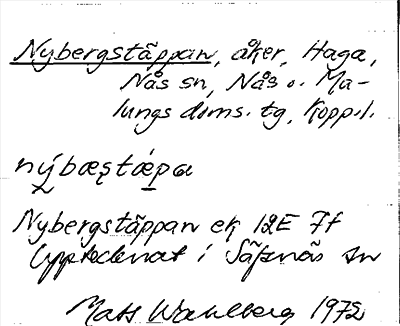 Nybergstäppan, åker, Haga,
Nås sn, Nås o. Ma-
lungs doms. tg, Kopp.l.
nýbæṣtæ̀pa
Nybergstäppan ek 12E 7f
Upptecknat i Säfsnäs sn
Mats Wahlberg 1972